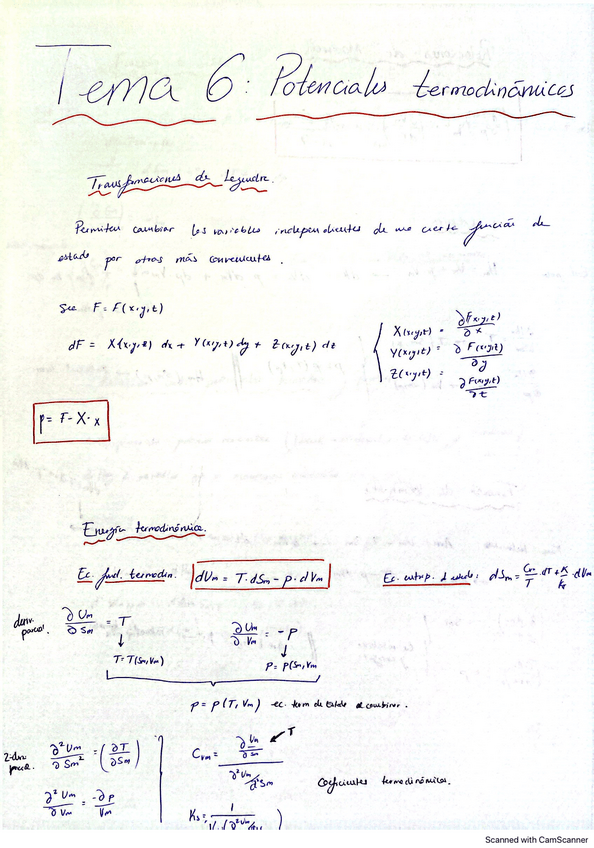 Tema 6: Potenciales termodinámicos
Transformaciones de Legendre.
Permiten cambiar las variables independientes de una cierta función de
estado por otras más convenientes.
Sea F = F(x,y,z)
dF = X(x,y,z) dx + Y(x,y,z) dy + Z(x,y,z) dz
X(x,y,z) = ∂F(x,y,z)/∂x
Y(x,y,z) = ∂F(x,y,z)/∂y
Z(x,y,z) = ∂F(x,y,z)/∂z
p = F - X · x
Energía termodinámica.
Ec. fund. termodin. dUm = T·dSm - p·dVm
Ec. entrop. d estado: dSm = Cvm/T · dT +
deriv. parcial. ∂Um/∂Sm = T
∂Um/∂Vm = -p
T = T(Sm,Vm)
p = p(Sm,Vm)
p = p(T,Vm) ec. term de estado al combinar.
2ª deriv. parcial. ∂²Um/∂Sm² = (∂T/∂Sm)
∂²Um/∂Vm = -∂p/Vm
Cvm =
T
Coeficientes termodinámicos.
Ks =
Scanned with CamScanner